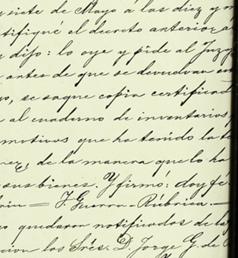 siete de Mayo á las diez y
tifiqué el decreto anterior a
dijo: lo oye y pide al Juzg
antes de que se devuelvan
o, se saque copia certificad
al cuaderno de inventarios,
motivos que ha tenido la
de la manera que lo ha
sus bienes. Y firmó: doy fé
Guerra = Rúbrica =
quedaron notificados de la
los Sres. D. Jorge G. de